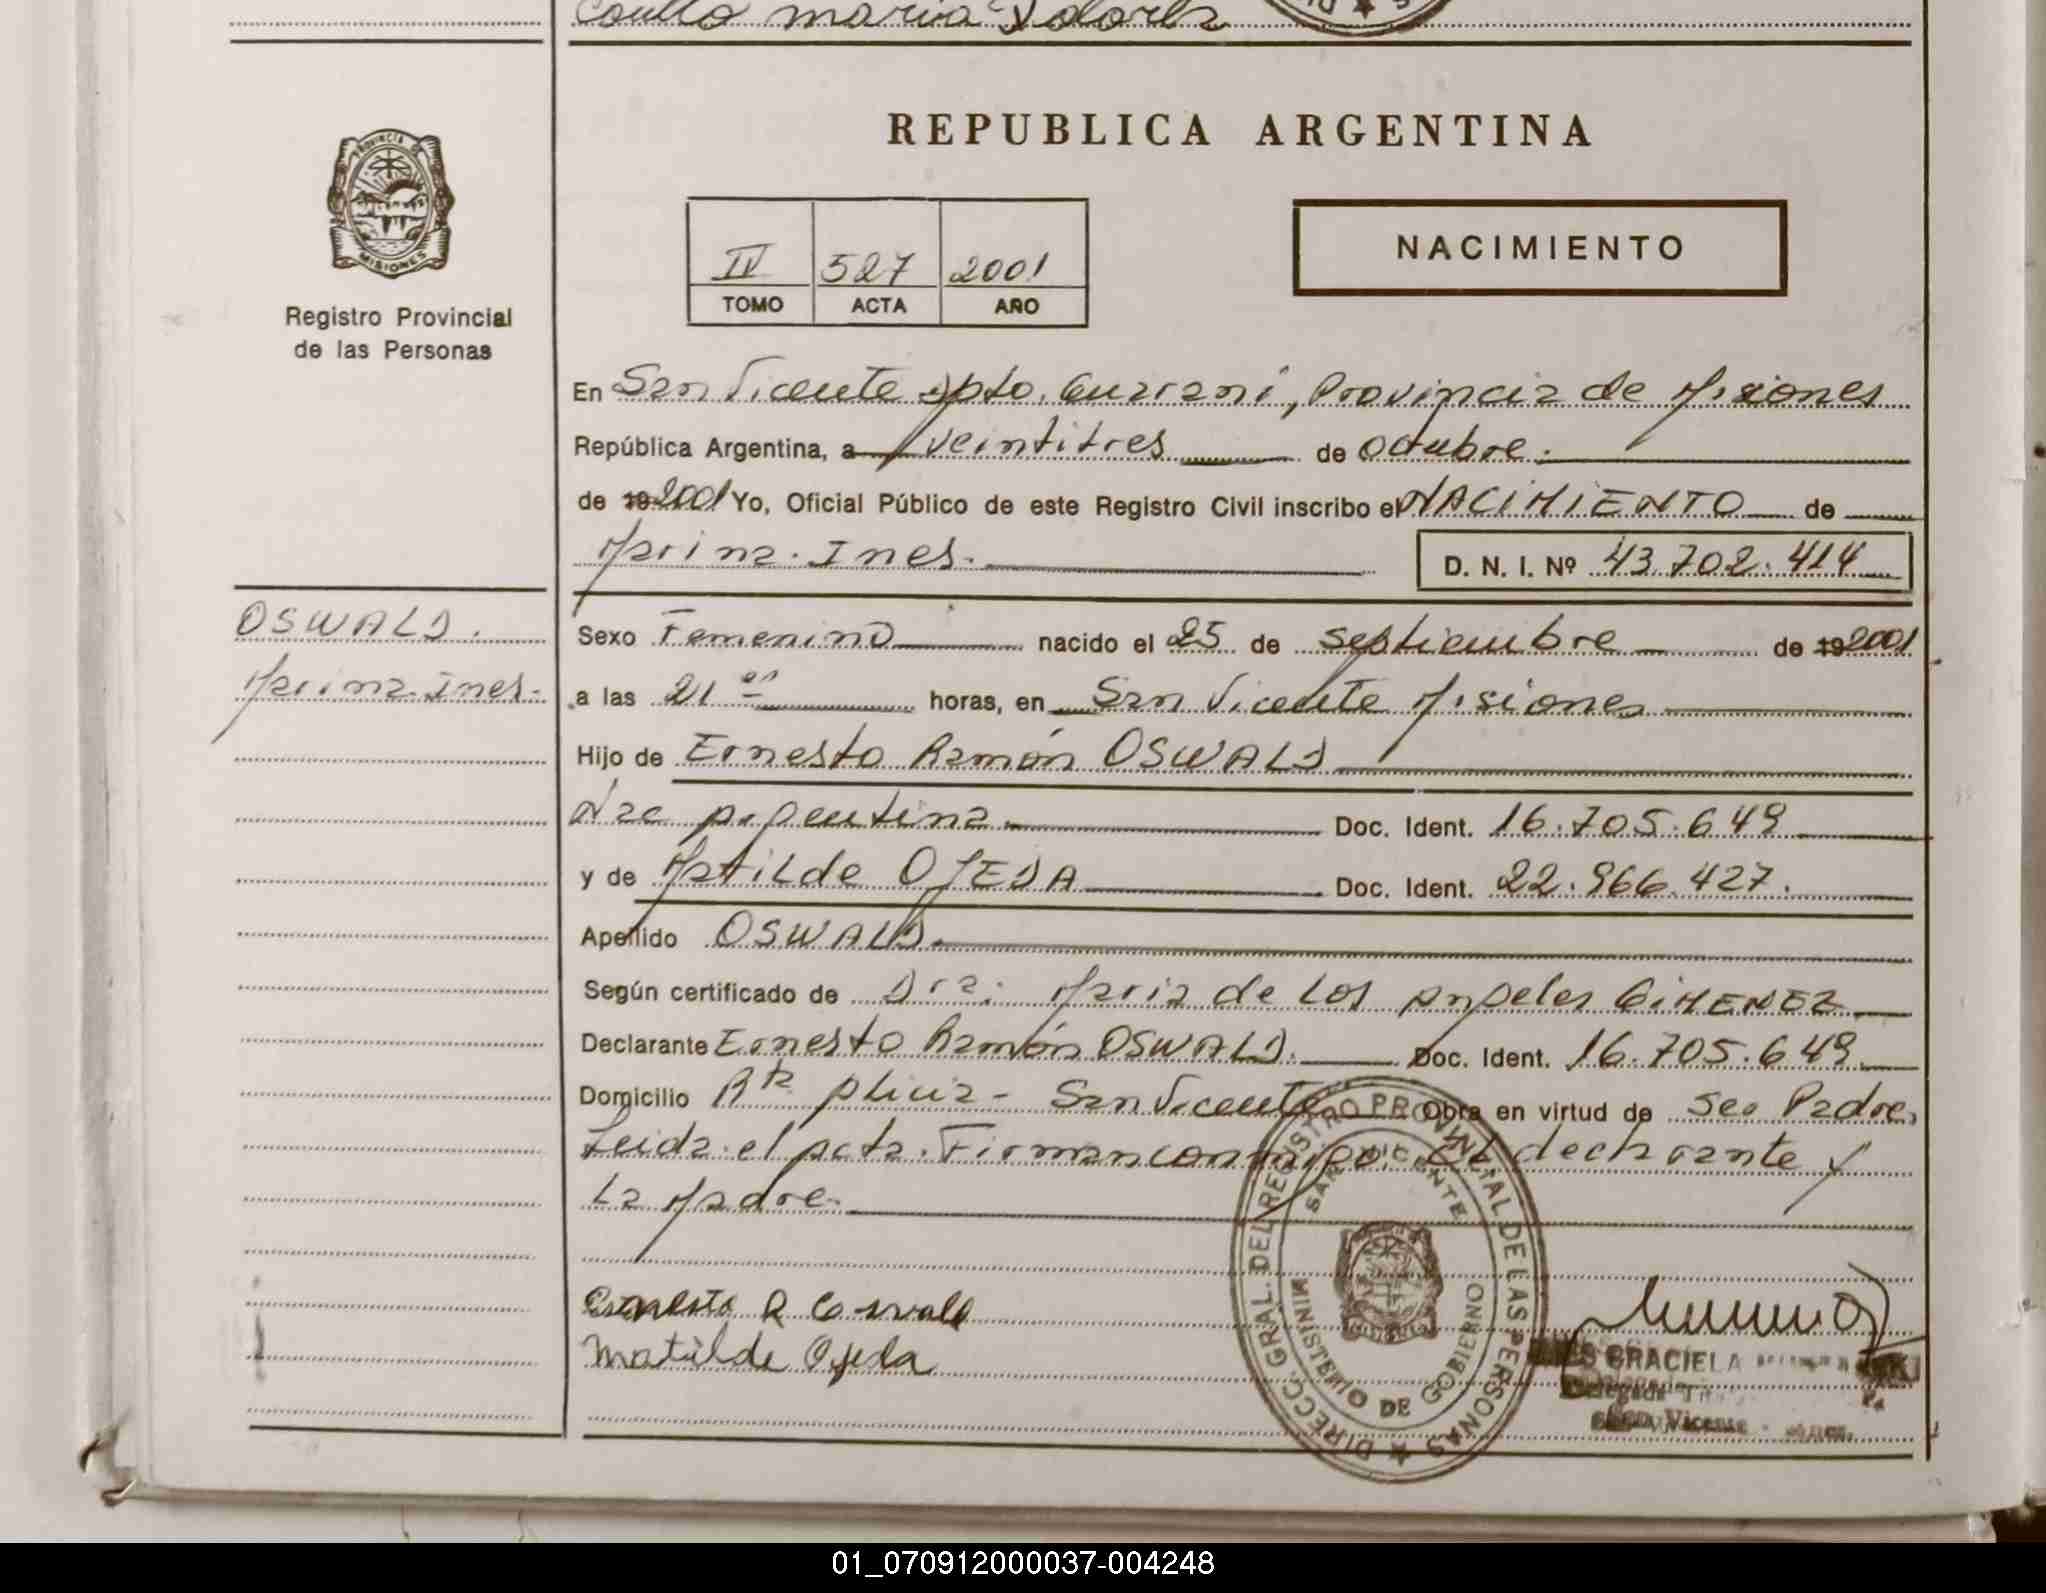 Maria Dolores
PROVINCIA DE
MISIONES
Registro Provincial
de las Personas
REPUBLICA ARGENTINA
IV 527 2001
TOMO ACTA AÑO
NACIMIENTO
En San Vicente Dpto. Guarani, Provincia de Misiones
República Argentina, a veintitres de octubre.
de 19 2001 Yo, Oficial Público de este Registro Civil inscribo el NACIMIENTO de
Marina Ines.
D. N. I. Nº 43.702.414
OSWALD.
Marina Ines.
Sexo Femenino nacido el 25 de Septiembre de 19 2001
a las 21 horas, en San Vicente Misiones
Hijo de Ernesto Ramón OSWALD
Nac Argentina Doc. Ident. 16.705.649
y de Matilde OJEDA Doc. Ident. 22.966.427.
Apellido OSWALD
Según certificado de Dra. Maria de Los Angeles GIMENEZ
Declarante Ernesto Ramón OSWALD. Doc. Ident. 16.705.649
Domicilio San Vicente Obra en virtud de Ser Padre,
Leida el acta. Firman conmigo. El declarante y
La Madre.
DIRECC. GRAL. DEL REGISTRO PROVINCIAL DE LAS PERSONAS
SAN VICENTE
MINISTERIO DE GOBIERNO
Ernesto R Oswald
Matilde Ojeda
GRACIELA
Delegada
San Vicente
01_070912000037-004248